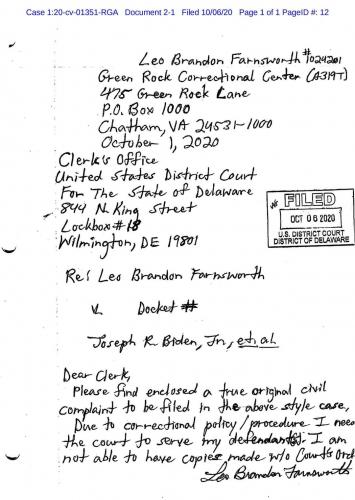 Case 1:20-cv-01351-RGA Document 2-1 Filed 10/06/20 Page 1 of 1 PageID #: 12
Leo Brandon Farnsworth #024201
Green Rock Correctional Center (A319T)
475 Green Rock Lane
P.O. Box 1000
Chatham, VA 24531-1000
October 1, 2020
Clerk's Office
United States District Court
For The State of Delaware
844 N. King Street
Lockbox #18
Wilmington, DE 19801
FILED
OCT 06 2020
U.S. DISTRICT COURT
DISTRICT OF DELAWARE
Re: Leo Brandon Farnsworth
v. Docket #
Joseph R. Biden, Jr., et al.
Dear Clerk,
Please find enclosed a true original civil
complaint to be filed in the above style case,
Due to correctional policy/procedure I need
the court to serve my defendant(s). I am
not able to have copies made w/o Court's Ord
Leo Brandon Farnsworth